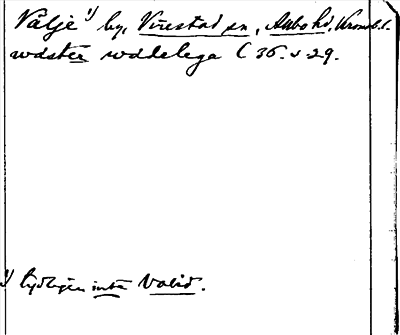 Välje 1) by, Virestad sn, Allbo hd, Kronob. l.
wäster wddelega C 36. s 29.
1) tydligen inte Valid.